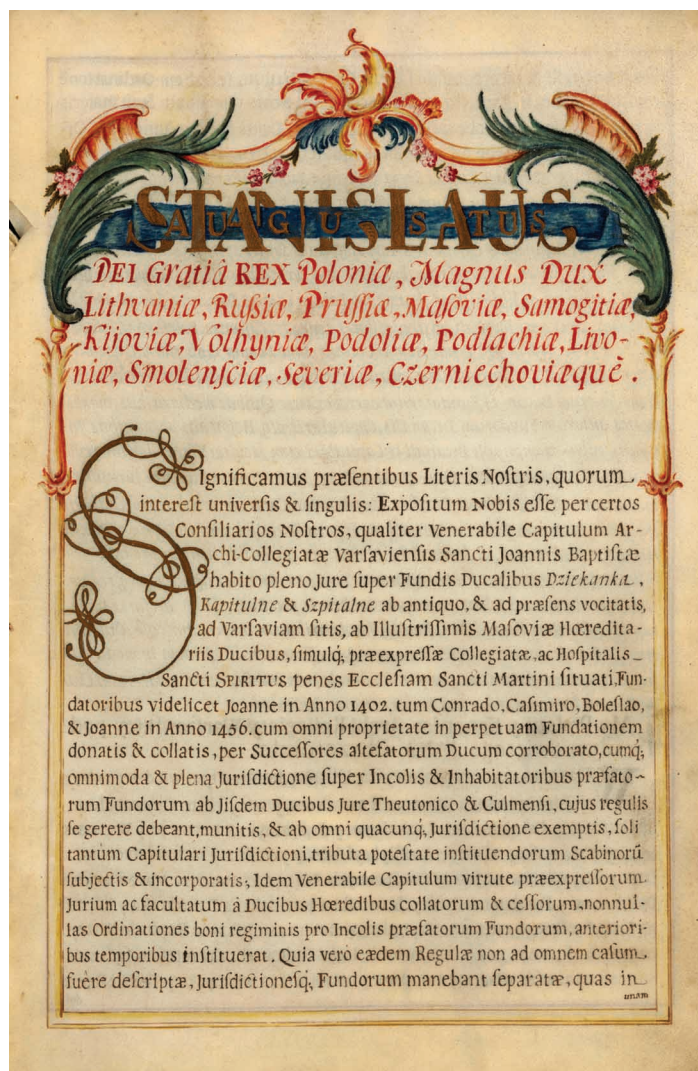 STANISLAUS
AUGUSTUS
DEI Gratiâ REX Poloniæ, Magnus Dux
Lithvaniæ, Rußiæ, Pruſſiæ, Maſoviæ, Samogitiæ,
Kijoviæ, Volhyniæ, Podoliæ, Podlachiæ, Livo-
niæ, Smolenſciæ, Severiæ, Czerniechoviæquè.
Significamus præſentibus Literis Noſtris, quorum
intereſt univerſis & ſingulis: Expoſitum Nobis eſſe per certos
Conſiliarios Noſtros, qualiter Venerabile Capitulum Ar-
chi-Collegiatæ Varſavienſis Sancti Joannis Baptiſtæ
habito pleno Jure ſuper Fundis Ducalibus Dziekanka,
Kapitulne & Szpitalne ab antiquo, & ad præſens vocitatis,
ad Varſaviam ſitis, ab Illuſtriſſimis Maſoviæ Hœredita-
riis Ducibus, ſimulq; præexpreſſæ Collegiatæ, ac Hoſpitalis
Sancti SPIRITUS penes Eccleſiam Sancti Martini ſituati, Fun-
datoribus videlicet Joanne in Anno 1402. tum Conrado, Caſimiro, Boleſlao,
& Joanne in Anno 1456. cum omni proprietate in perpetuam Fundationem
donatis & collatis, per Succeſſores altefatorum Ducum corroborato, cumq;
omnimoda & plena Jurisdictione ſuper Incolis & Inhabitatoribus præfato-
rum Fundorum ab Jiſdem Ducibus Jure Theutonico & Culmenſi, cujus regulis
ſe gerere debeant, munitis, & ab omni quacunq; Juriſdictione exemptis, ſoli
tantùm Capitulari Juriſdictioni, tributa poteſtate inſtituendorum Scabinorũ
ſubjectis & incorporatis; Idem Venerabile Capitulum virtute præexpreſſorum
Jurium ac facultatum â Ducibus Hœredibus collatorum & ceſſorum, nonnul-
las Ordinationes boni regiminis pro Incolis præfatorum Fundorum, anteriori-
bus temporibus inſtituerat. Quia verò eædem Regulæ non ad omnem caſum
fuêre deſcriptæ, Jurisdictioneſq; Fundorum manebant ſeparatæ, quas in
unam